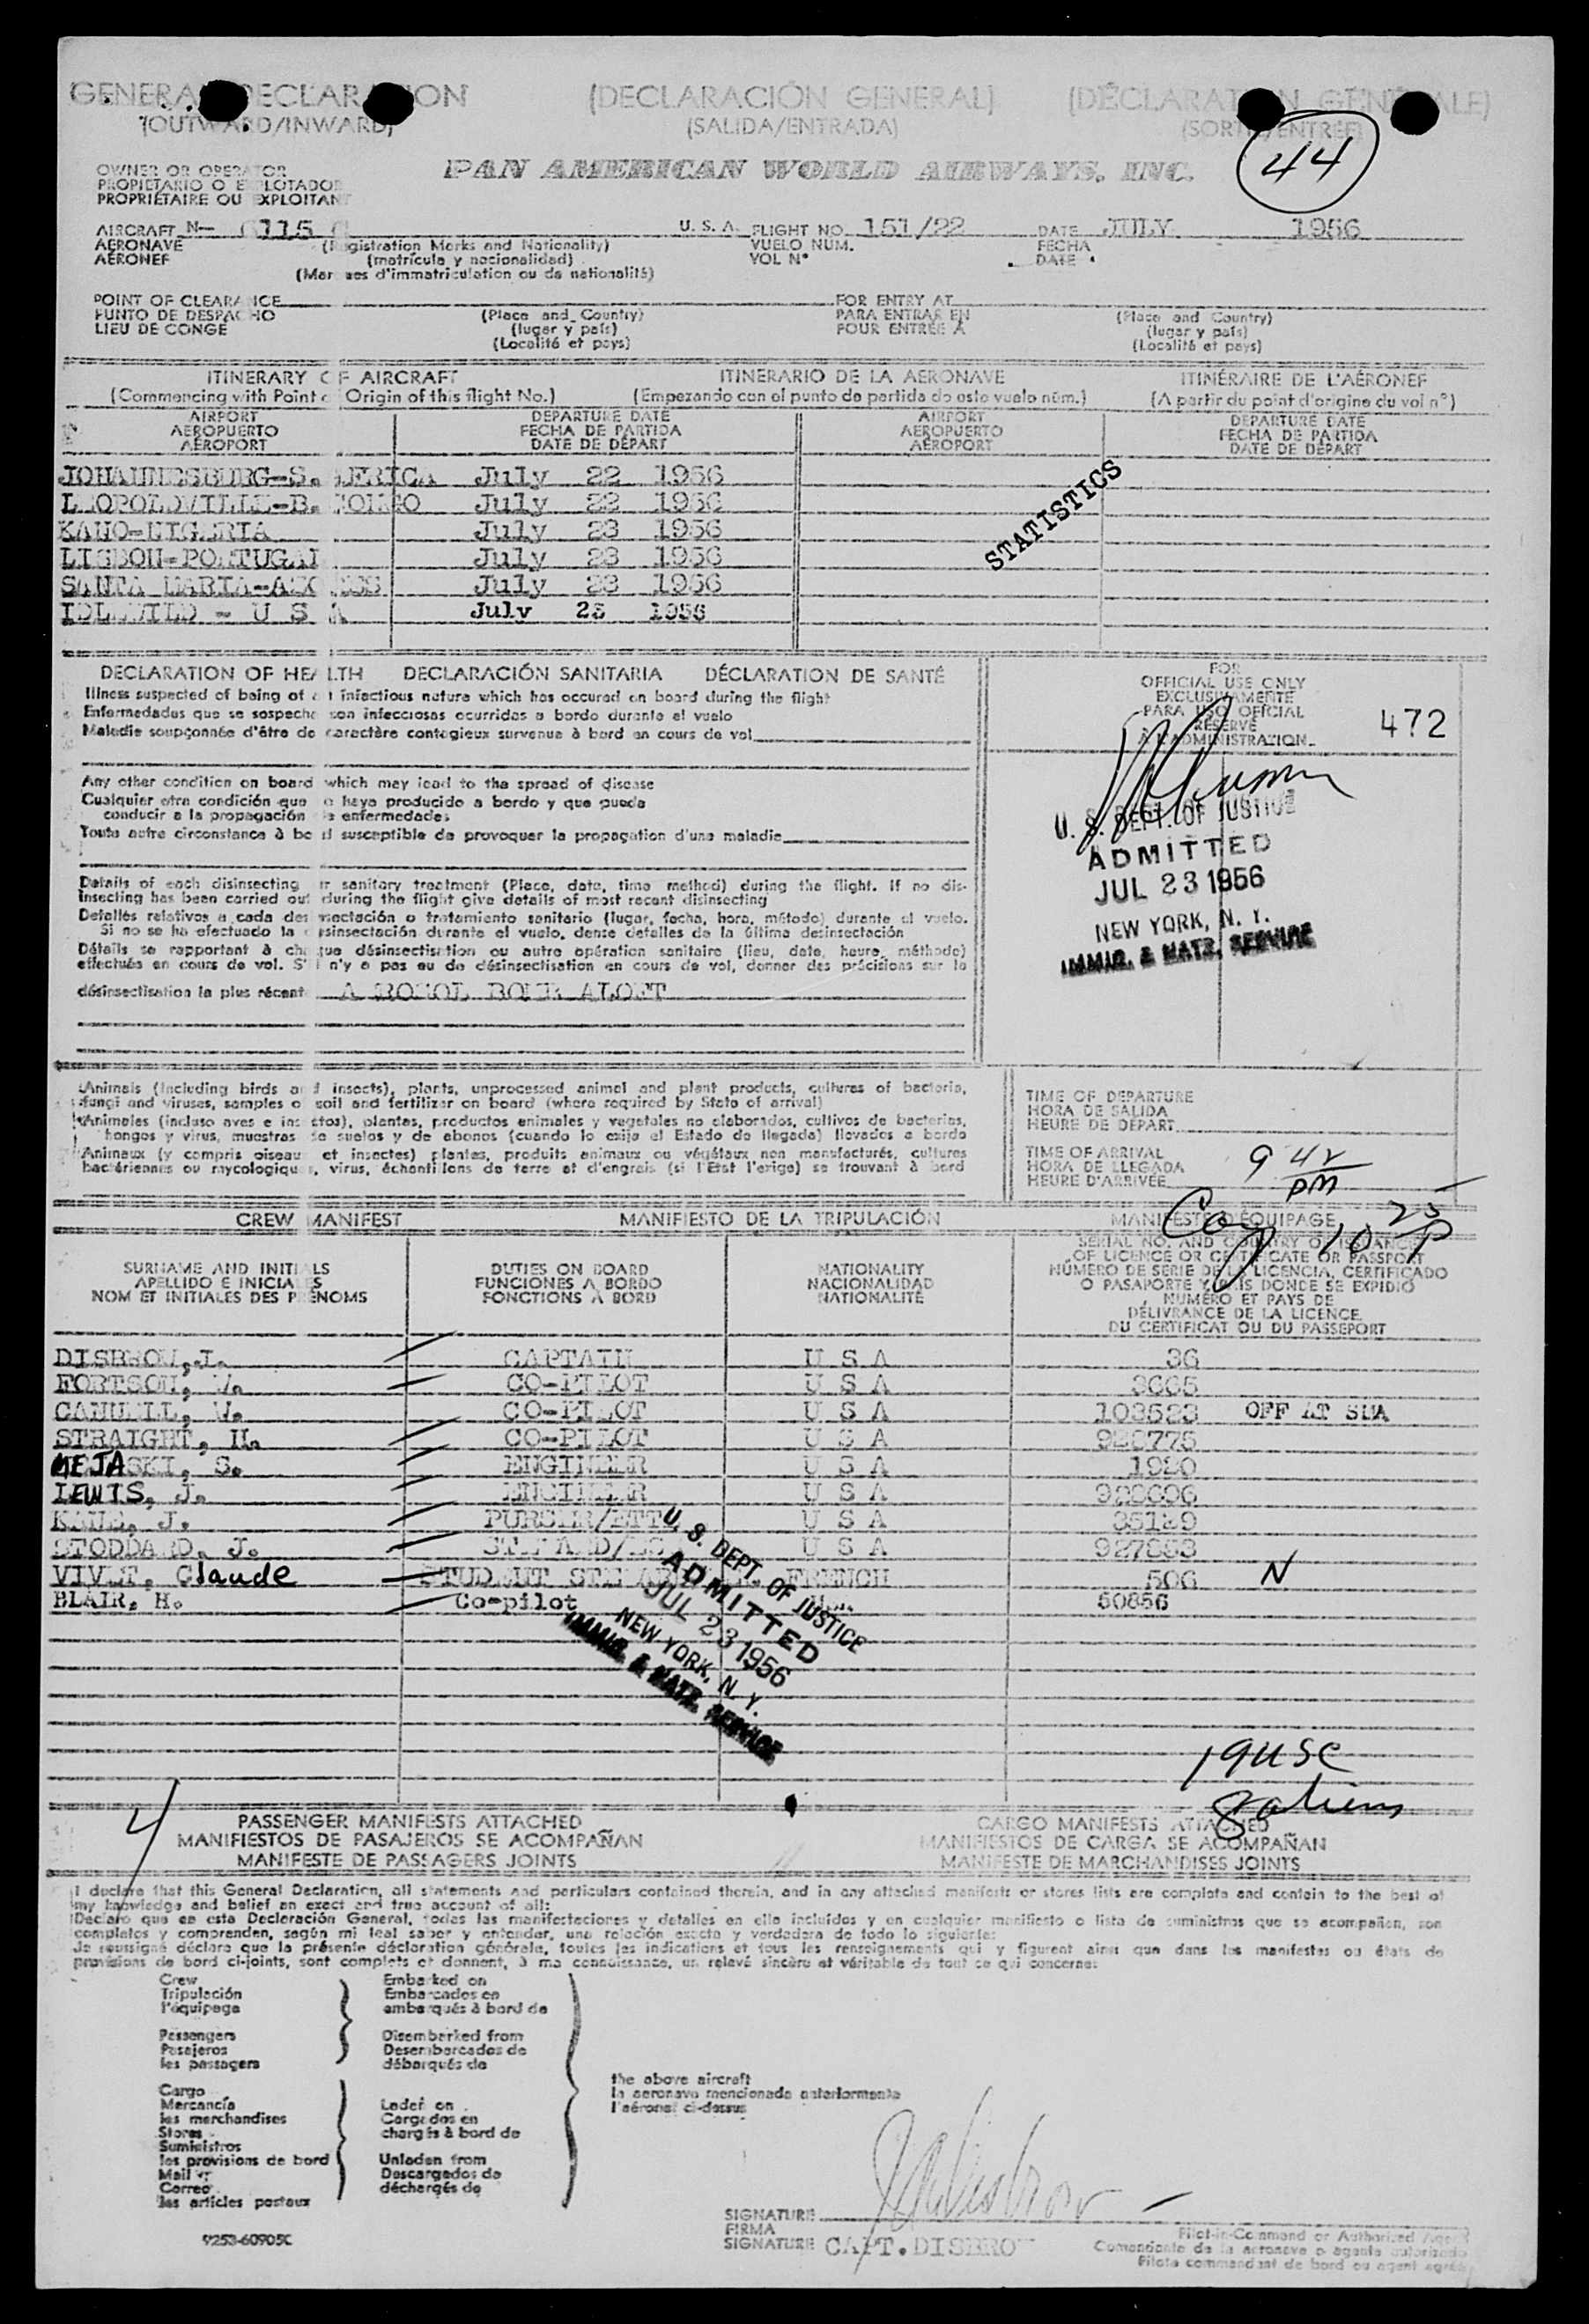 GENERAL DECLARATION (DECLARACIÓN GENERAL) (DÉCLARATION GÉNÉRALE)
(OUTWARD/INWARD) (SALIDA/ENTRADA) (SORTIE/ENTRÉE)
44
OWNER OR OPERATOR PAN AMERICAN WORLD AIRWAYS, INC.
PROPIETARIO O EXPLOTADOR
PROPRIÉTAIRE OU EXPLOITANT
AIRCRAFT N- 6115 U. S. A. FLIGHT NO. 151/22 DATE JULY 1956
AERONAVE (Registration Marks and Nationality) VUELO NÚM. FECHA
AÉRONEF (matrícula y nacionalidad) VOL N° DATE
(Marques d'immatriculation ou de nationalité)
POINT OF CLEARANCE FOR ENTRY AT
PUNTO DE DESPACHO (Place and Country) PARA ENTRAR EN (Place and Country)
LIEU DE CONGÉ (lugar y país) POUR ENTRÉE À (lugar y país)
(Localité et pays) (Localité et pays)
ITINERARY OF AIRCRAFT ITINERARIO DE LA AERONAVE ITINÉRAIRE DE L'AÉRONEF
(Commencing with Point of Origin of this flight No.) (Empezando con el punto de partida de este vuelo núm.) (A partir du point d'origine du vol n°)
AIRPORT DEPARTURE DATE AIRPORT DEPARTURE DATE
AEROPUERTO FECHA DE PARTIDA AEROPUERTO FECHA DE PARTIDA
AÉROPORT DATE DE DÉPART AÉROPORT DATE DE DÉPART
JOHANNESBURG-S. AFRICA July 22 1956
LEOPOLDVILLE-B. CONGO July 22 1956
KANO-NIGERIA July 23 1956
LISBON-PORTUGAL July 23 1956
SANTA MARIA-AZORES July 23 1956
IDLEWILD - U S A July 23 1956
STATISTICS
DECLARATION OF HEALTH DECLARACIÓN SANITARIA DÉCLARATION DE SANTÉ
Illness suspected of being of an infectious nature which has occured on board during the flight
Enfermedades que se sospecha son infecciosas ocurridas a bordo durante el vuelo
Maladie soupçonnée d'être de caractère contagieux survenue à bord en cours de vol
FOR
OFFICIAL USE ONLY
EXCLUSIVAMENTE
PARA USO OFICIAL
RÉSERVÉ
À L'ADMINISTRATION
472
Any other condition on board which may lead to the spread of disease
Cualquier otra condición que se haya producido a bordo y que pueda
conducir a la propagación de enfermedades
Toute autre circonstance à bord susceptible de provoquer la propagation d'une maladie
U. S. DEPT. OF JUSTICE
ADMITTED
JUL 23 1956
NEW YORK, N. Y.
IMMIG. & NATZ. SERVICE
Details of each disinsecting or sanitary treatment (Place, date, time method) during the flight. If no dis-
insecting has been carried out during the flight give details of most recent disinsecting
Detalles relativos a cada desinsectación o tratamiento sanitario (lugar, fecha, hora, método) durante el vuelo.
Si no se ha efectuado la desinsectación durante el vuelo, dense detalles de la última desinsectación
Détails se rapportant à chaque désinsectisation ou autre opération sanitaire (lieu, date, heure, méthode)
effectués en cours de vol. S'il n'y a pas eu de désinsectisation en cours de vol, donner des précisions sur la
désinsectisation la plus récente
Animals (including birds and insects), plants, unprocessed animal and plant products, cultures of bacteria,
fungi and viruses, samples of soil and fertilizer on board (where required by State of arrival)
Animales (incluso aves e insectos), plantas, productos animales y vegetales no elaborados, cultivos de bacterias,
hongos y virus, muestras de suelos y de abonos (cuando lo exija el Estado de llegada) llevados a bordo
Animaux (y compris oiseaux et insectes) plantes, produits animaux ou végétaux non manufacturés, cultures
bactériennes ou mycologiques, virus, échantillons de terre et d'engrais (si l'État l'exige) se trouvant à bord
TIME OF DEPARTURE
HORA DE SALIDA
HEURE DE DÉPART
TIME OF ARRIVAL
HORA DE LLEGADA
HEURE D'ARRIVÉE
9 42 pm
10 25 P
CREW MANIFEST MANIFIESTO DE LA TRIPULACIÓN MANIFESTE D'ÉQUIPAGE
SURNAME AND INITIALS DUTIES ON BOARD NATIONALITY SERIAL NO. AND COUNTRY OF ISSUANCE
APELLIDO E INICIALES FUNCIONES A BORDO NACIONALIDAD OF LICENCE OR CERTIFICATE OR PASSPORT
NOM ET INITIALES DES PRÉNOMS FONCTIONS À BORD NATIONALITÉ NÚMERO DE SERIE DE LA LICENCIA, CERTIFICADO
O PASAPORTE Y PAIS DONDE SE EXPIDIÓ
NUMÉRO ET PAYS DE
DÉLIVRANCE DE LA LICENCE,
DU CERTIFICAT OU DU PASSEPORT
DISBROW, J. CAPTAIN U S A 36
FORTSON, W. CO-PILOT U S A 3665
CANWELL, W. CO-PILOT U S A 103523 OFF AT SMA
STRAIGHT, H. CO-PILOT U S A 928775
MEJASKI, S. ENGINEER U S A 1920
LEWIS, J. ENGINEER U S A
KANE, J. PURSER/ETTE U S A
STODDARD, J. U S A
VIVET, Claude STUDENT FRENCH 506 N
BLAIR, H. Co-pilot 60856
U. S. DEPT. OF JUSTICE
ADMITTED
JUL 23 1956
NEW YORK, N. Y.
IMMIG. & NATZ. SERVICE
19 USC
8 aliens
4
PASSENGER MANIFESTS ATTACHED CARGO MANIFESTS ATTACHED
MANIFIESTOS DE PASAJEROS SE ACOMPAÑAN MANIFIESTOS DE CARGA SE ACOMPAÑAN
MANIFESTE DE PASSAGERS JOINTS MANIFESTE DE MARCHANDISES JOINTS
I declare that this General Declaration, all statements and particulars contained therein, and in any attached manifests or stores lists are complete and contain to the best of
my knowledge and belief an exact and true account of all:
Declaro que en esta Declaración General, todas las manifestaciones y detalles en ella incluídos y en cualquier manifiesto o lista de suministros que se acompañan, son
completos y comprenden, según mi leal saber y entender, una relación exacta y verdadera de todo lo siguiente:
Je soussigné déclare que la présente déclaration générale, toutes les indications et tous les renseignements qui y figurent ainsi que dans les manifestes ou états de
provisions de bord ci-joints, sont complets et donnent, à ma connaissance, un relevé sincère et véritable de tout ce qui concerne:
Crew Embarked on
Tripulación Embarcados en
l'équipage embarqués à bord de
Passengers Disembarked from
Pasajeros Desembarcados de
les passagers débarqués de
the above aircraft
la aeronave mencionada anteriormente
l'aéronef ci-dessus
Cargo
Mercancía Laden on
les marchandises Cargados en
Stores chargés à bord de
Suministros
les provisions de bord Unladen from
Mail Descargados de
Correo déchargés de
les articles postaux
SIGNATURE
FIRMA
SIGNATURE CAPT. DISBROW
Pilot-in-Command or Authorized Agent
Comandante de la aeronave o agente autorizado
Pilote commandant de bord ou agent agréé
9253-60905C